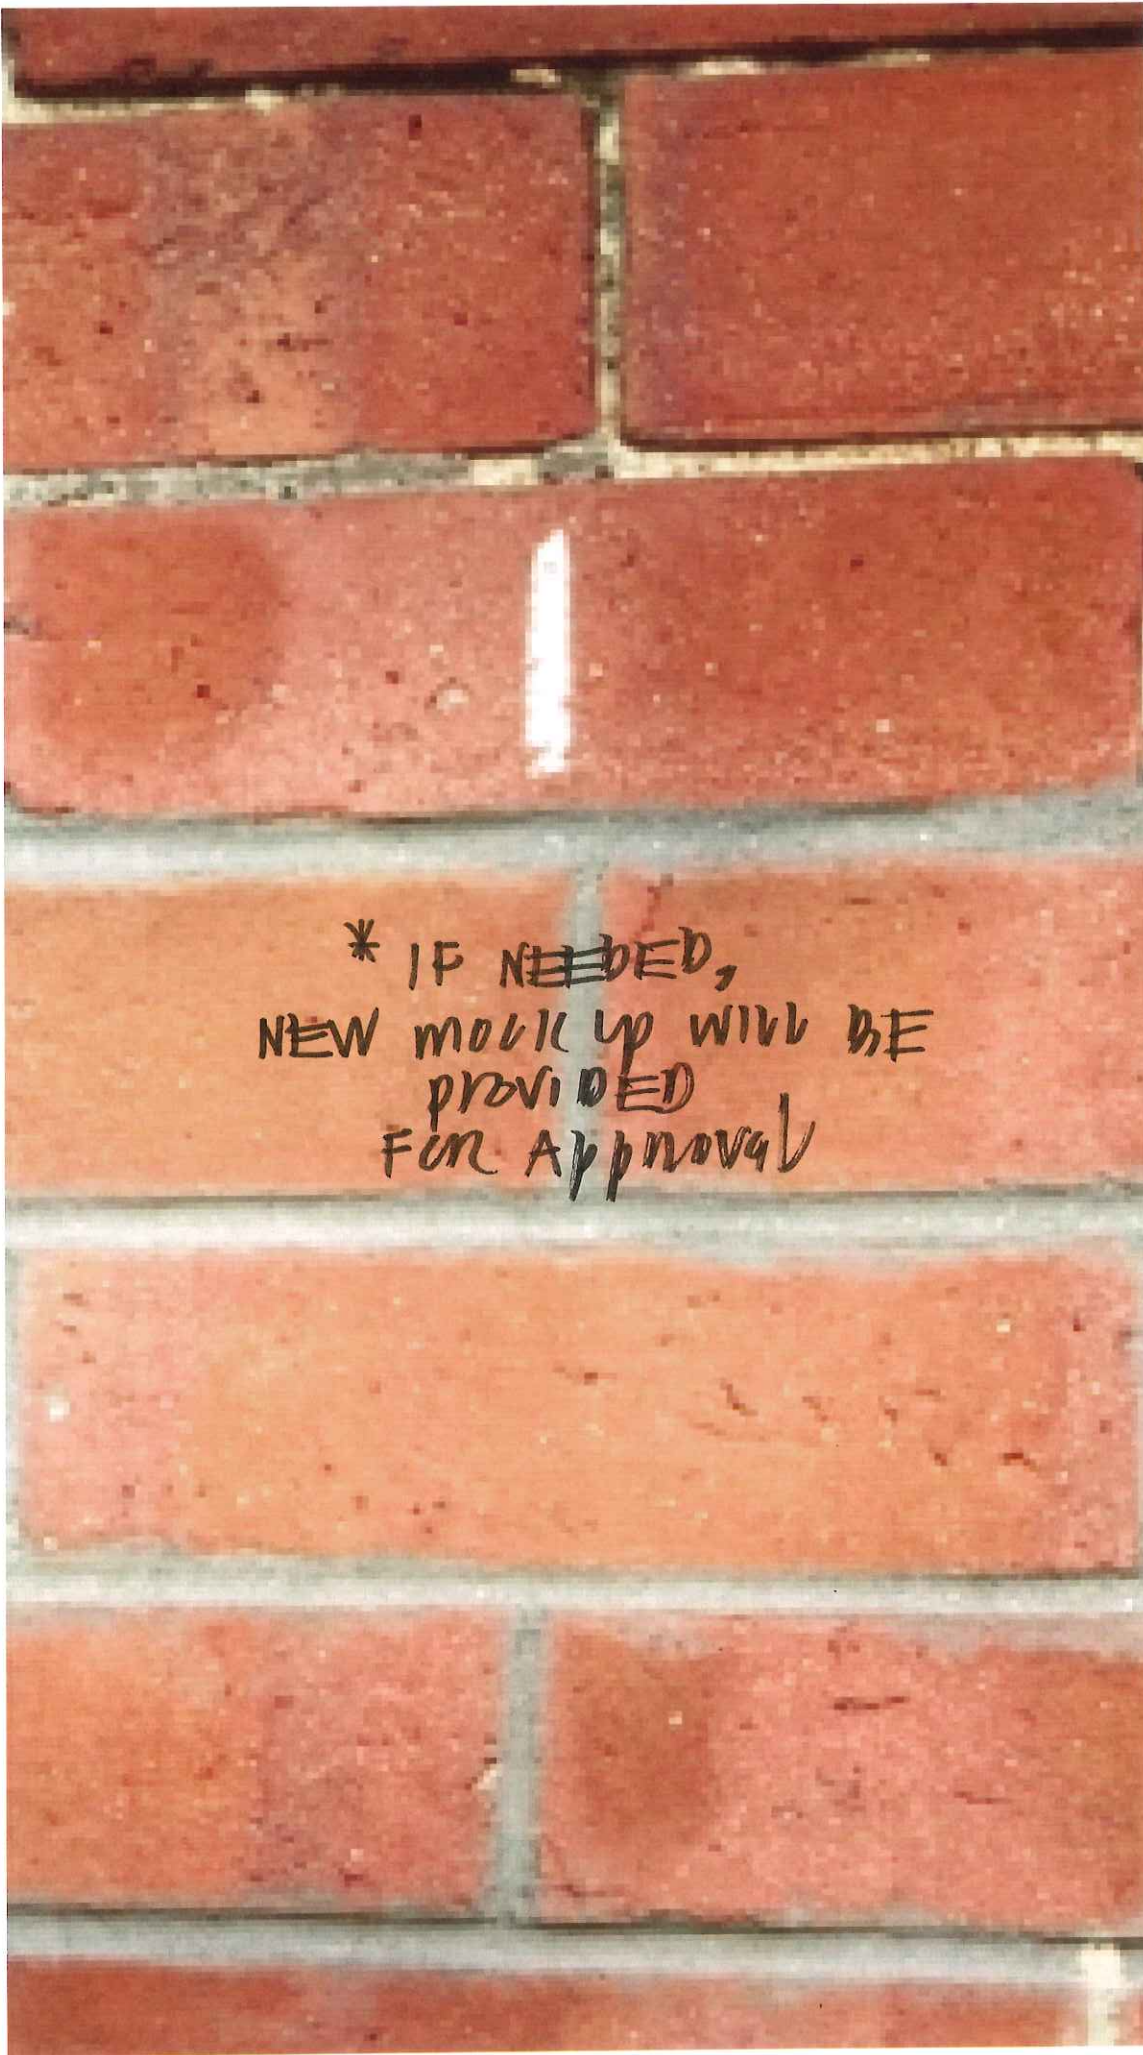 * IF NEEDED,
NEW mock up will BE
provIDED
For Approval